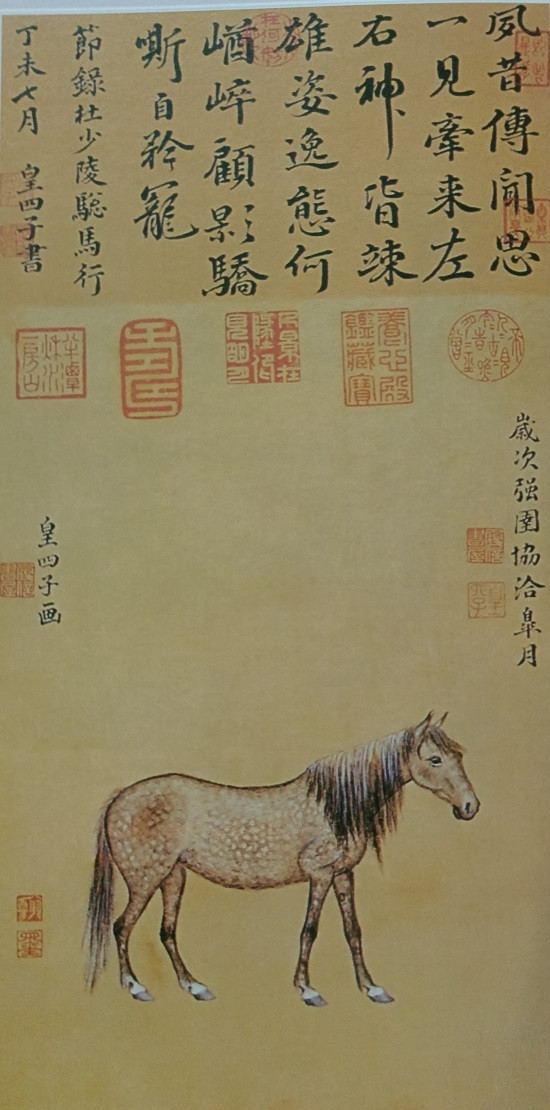 夙昔傳聞思
一見牽来左
右神皆竦
雄姿逸態何
崷崪顧影驕
嘶自矜寵
節錄杜少陵驄馬行
丁未七月 皇四子書
養心殿鑑藏寶
歲次强圉協洽皐月
皇四子画